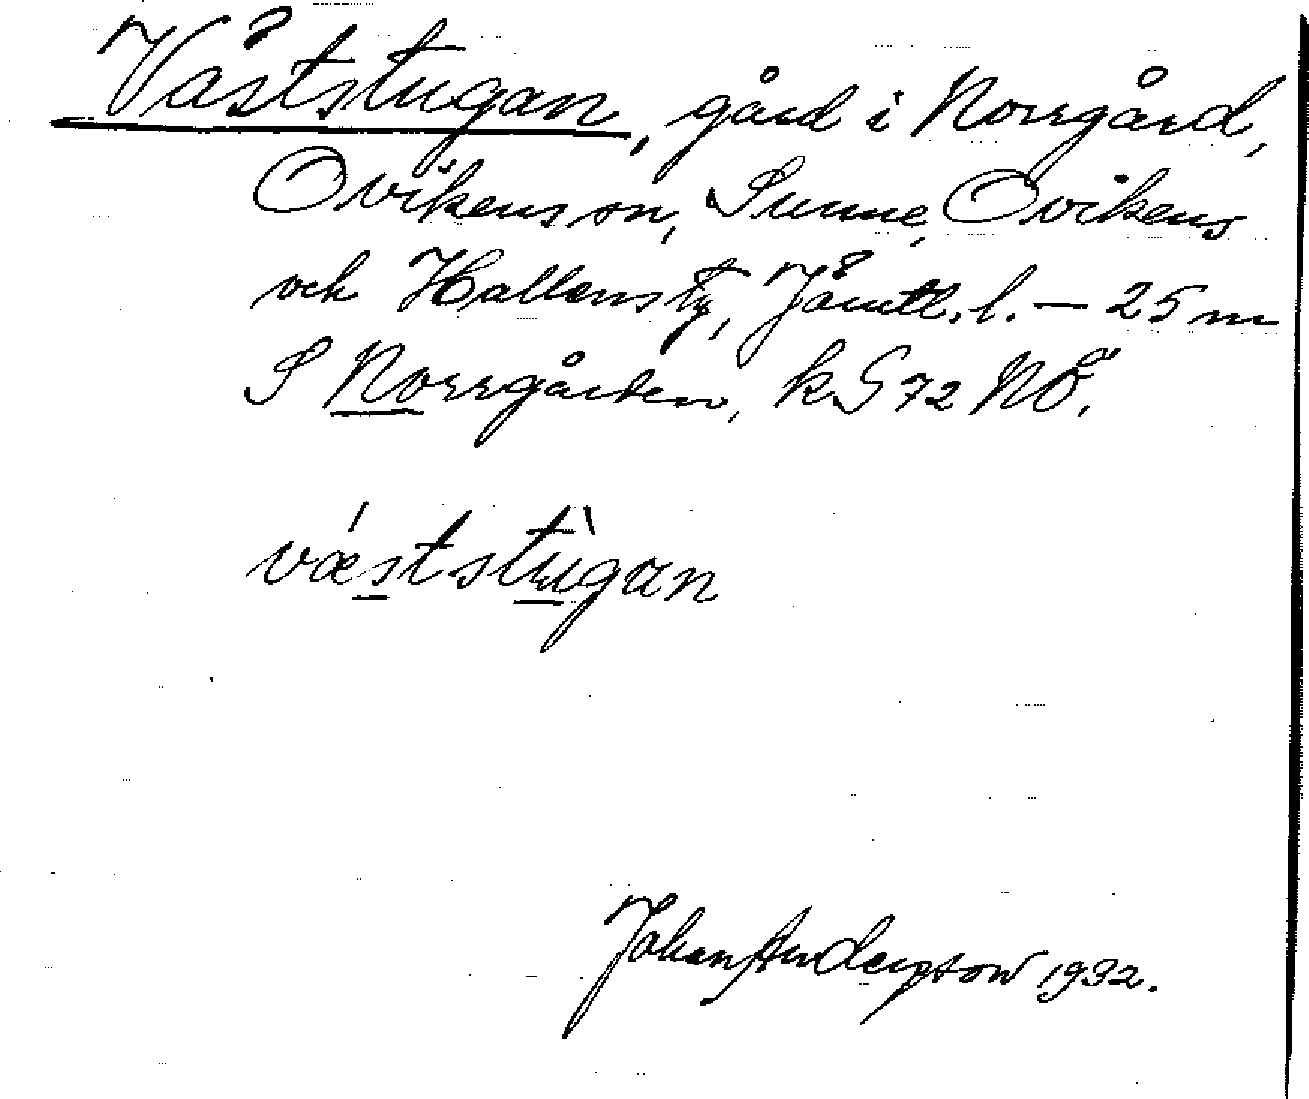 Väststugan, gård i Norrgård,
Ovikens sn, Sunne, Ovikens
och Hallens tg, Jämtl. l. — 25 m
S Norrgården, k S 72 NÖ.
væststùgan
Johan Anderson 1932.